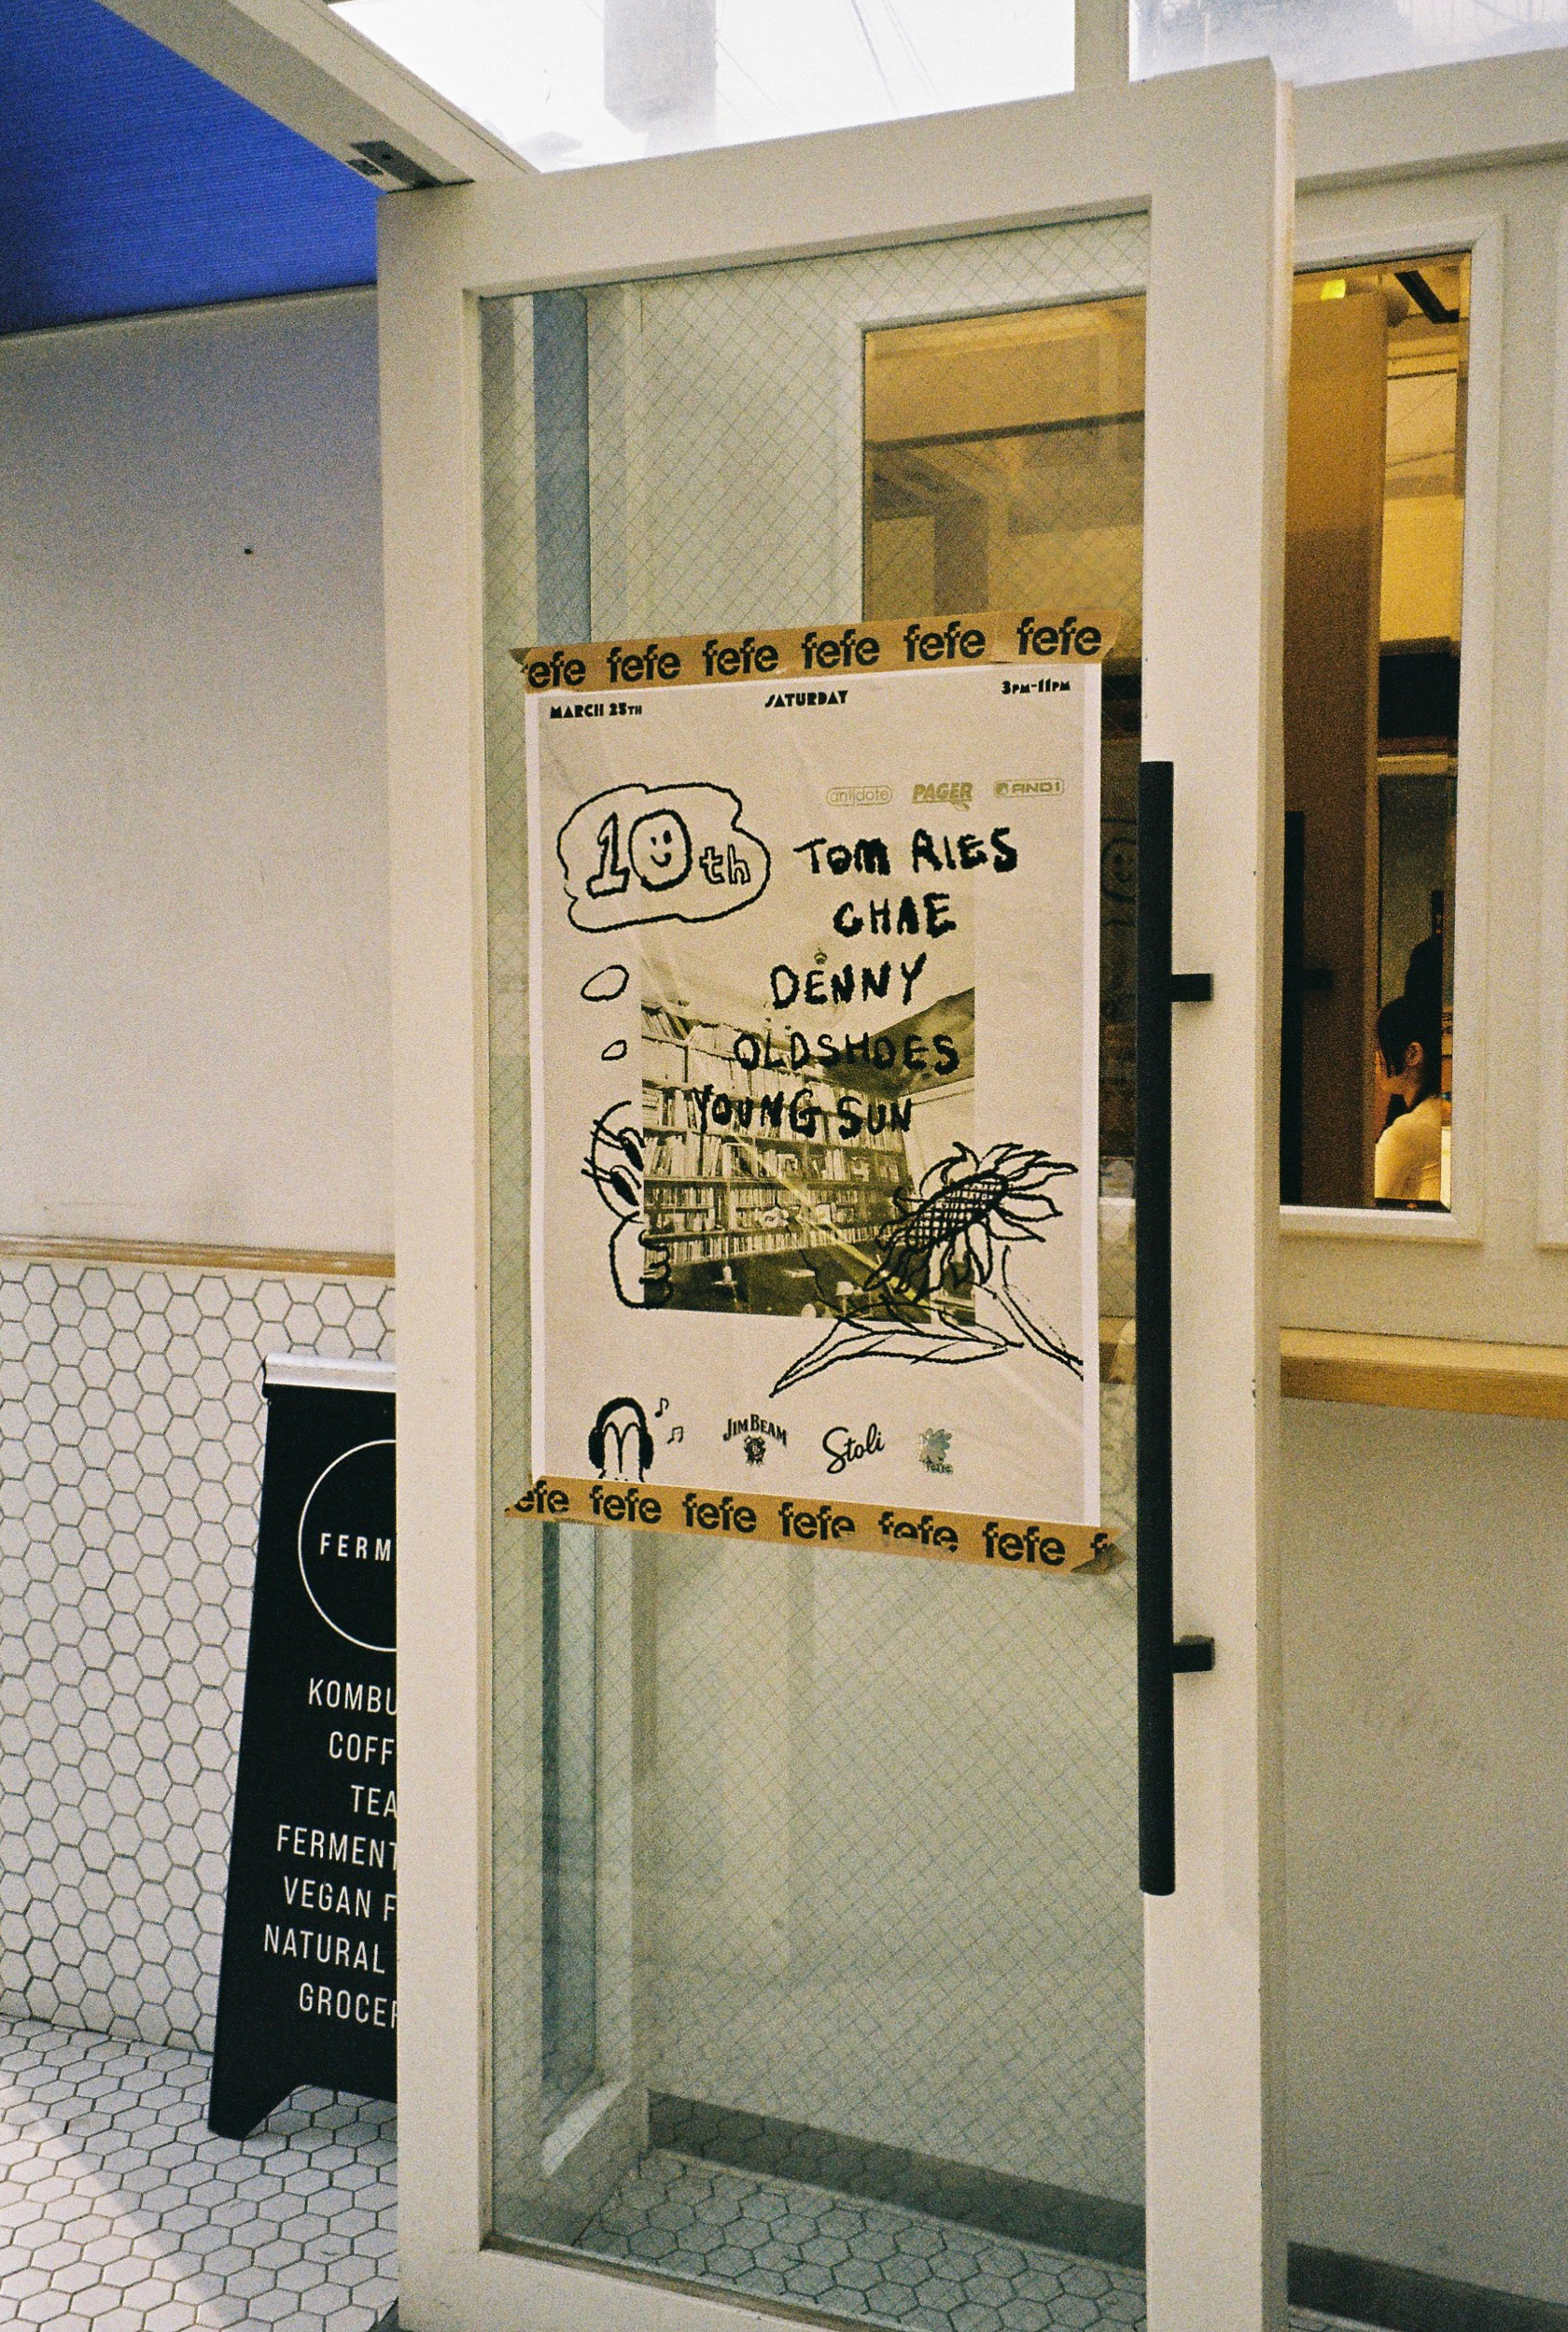 efe fefe fefe fefe fefe fefe
MARCH 25TH SATURDAY 3PM-11PM
antidote PAGER AND1
10th
TOM AIES
CHAE
DENNY
OLDSHOES
YOUNG SUN
JIM BEAM Stoli
efe fefe fefe fefe fefe fefe f
FERM
KOMBU
COFF
TEA
FERMENT
VEGAN F
NATURAL
GROCER